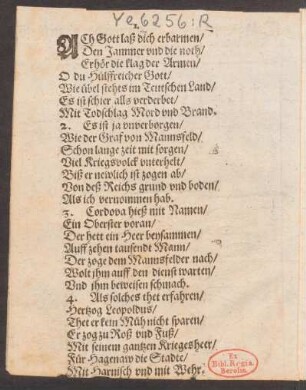 Ye 6256:R
ACh Gott laß dich erbarmen/
Den Jammer vnd die noth/
Erhör die klag der Armen/
O du Hülffreicher Gott/
Wie übel stehts im Teutschen Land/
Es ist schier alls verderbet/
Mit Todschlag Mord vnd Brand.
2. Es ist ja vnverborgen/
Wie der Graf von Mannsfeld/
Schon lange zeit mit sorgen/
Viel Kriegsvolck vnterhelt/
Biß er newlich ist zogen ab/
Von deß Reichs grund vnd boden/
Als ich vernommen hab.
3. Cordova hieß mit Namen/
Ein Oberster voran/
Der hett ein Heer beysammen/
Auff zehen tausendt Mann/
Der zoge dem Mannsfelder nach/
Wolt jhm auff den dienst warten/
Vnd jhm beweisen schmach.
4. Als solches thet erfahren/
Hertzog Leopoldus/
Thet er kein Müh nicht sparen/
Er zog zu Roß vnd Fuß/
Mit seinem gantzen Kriegesheer/
Für Hagenaw die Stadte/
Mit Harnisch vnd mit Wehr.
Ex
Bibl. Regia
Berolin.